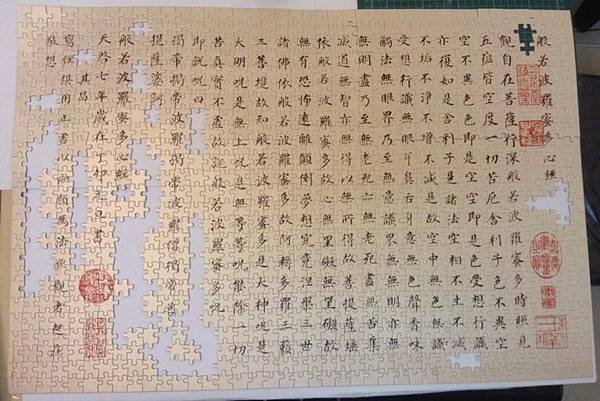 般若波羅蜜多心經
觀自在菩薩行深般若波羅蜜多時照見
五蘊皆空度一切苦厄舍利子色不異空
空不異色色即是空空即是色受想行識
亦復如是舍利子是諸法空相不生不滅
不垢不淨不增不減是故空中無色無
受想行識無眼耳鼻舌身意無色聲香味
觸法無眼界乃至無意識界無無明亦無
無明盡乃至無老死亦無老死盡無苦集
滅道無智亦無得以無所得故菩提薩埵
依般若波羅蜜多故心無罣礙無罣礙故
無有恐怖遠離顛倒夢想究竟涅槃三世
諸佛依般若波羅蜜多故阿耨多羅三藐
三菩提故知般若波羅蜜多是大神呪是
大明呪是無上呪是無等等呪能除一切
苦真實不虛故說般若波羅蜜多呪
即說呪曰
揭帝揭帝波羅揭帝波羅僧揭帝菩
提薩婆訶
般若波羅蜜多心經
天啓七年歲在丁卯元旦書
其昌
寫經俱用正書以願為法觀者起莊
敬想